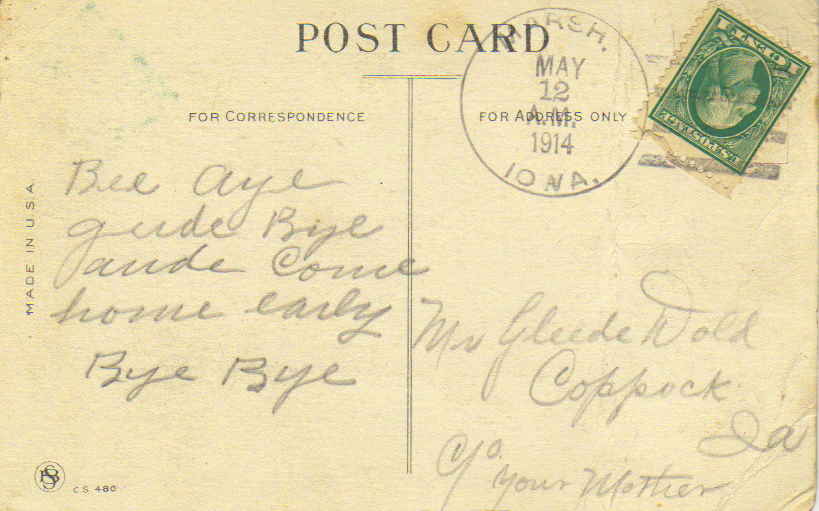 POST CARD
MARSH.
MAY
12
A.M.
1914
IOWA.
FOR CORRESPONDENCE
FOR ADDRESS ONLY
U.S. POSTAGE
1 CENT 1
MADE IN U.S.A.
Bee aye
gude Bye
ande Come
home early
Bye Bye
Mr Gleede Wold
Coppock
Ia
c/o
Your Mother
CS 480